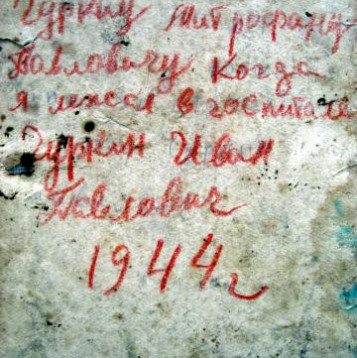 Гуркину Митрофану
Павловичу Когда
я лежал в госпитале
Гуркин Иван
Павлович
1944 г